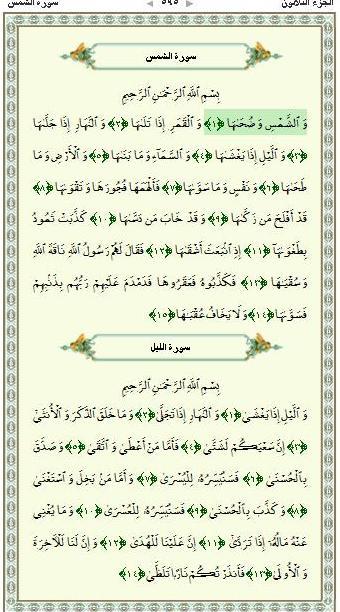 الجزء الثلاثون ٥٩٥ سورة الشمس
سورة الشمس
بِسْمِ اللَّهِ الرَّحْمَٰنِ الرَّحِيمِ
وَ الشَّمْسِ وَ ضُحَىٰهَا ﴿١﴾ وَ الْقَمَرِ إِذَا تَلَىٰهَا ﴿٢﴾ وَ النَّهَارِ إِذَا جَلَّىٰهَا
﴿٣﴾ وَ الَّيْلِ إِذَا يَغْشَىٰهَا ﴿٤﴾ وَ السَّمَآءِ وَ مَا بَنَىٰهَا ﴿٥﴾ وَ الْأَرْضِ وَ مَا
طَحَىٰهَا ﴿٦﴾ وَ نَفْسٍ وَ مَا سَوَّىٰهَا ﴿٧﴾ فَأَلْهَمَهَا فُجُورَهَا وَ تَقْوَىٰهَا ﴿٨﴾
قَدْ أَفْلَحَ مَن زَكَّىٰهَا ﴿٩﴾ وَ قَدْ خَابَ مَن دَسَّىٰهَا ﴿١٠﴾ كَذَّبَتْ ثَمُودُ
بِطَغْوَىٰهَآ ﴿١١﴾ إِذِ انۢبَعَثَ أَشْقَىٰهَا ﴿١٢﴾ فَقَالَ لَهُمْ رَسُولُ اللَّهِ نَاقَةَ اللَّهِ
وَ سُقْيَٰهَا ﴿١٣﴾ فَكَذَّبُوهُ فَعَقَرُوهَا فَدَمْدَمَ عَلَيْهِمْ رَبُّهُم بِذَنۢبِهِمْ
فَسَوَّىٰهَا ﴿١٤﴾ وَ لَا يَخَافُ عُقْبَٰهَا ﴿١٥﴾
سورة الليل
بِسْمِ اللَّهِ الرَّحْمَٰنِ الرَّحِيمِ
وَ الَّيْلِ إِذَا يَغْشَىٰ ﴿١﴾ وَ النَّهَارِ إِذَا تَجَلَّىٰ ﴿٢﴾ وَ مَا خَلَقَ الذَّكَرَ وَ الْأُنثَىٰٓ
﴿٣﴾ إِنَّ سَعْيَكُمْ لَشَتَّىٰ ﴿٤﴾ فَأَمَّا مَنْ أَعْطَىٰ وَ اتَّقَىٰ ﴿٥﴾ وَ صَدَّقَ
بِالْحُسْنَىٰ ﴿٦﴾ فَسَنُيَسِّرُهُۥ لِلْيُسْرَىٰ ﴿٧﴾ وَ أَمَّا مَنۢ بَخِلَ وَ اسْتَغْنَىٰ
﴿٨﴾ وَ كَذَّبَ بِالْحُسْنَىٰ ﴿٩﴾ فَسَنُيَسِّرُهُۥ لِلْعُسْرَىٰ ﴿١٠﴾ وَ مَا يُغْنِي
عَنْهُ مَالُهُۥٓ إِذَا تَرَدَّىٰٓ ﴿١١﴾ إِنَّ عَلَيْنَا لَلْهُدَىٰ ﴿١٢﴾ وَ إِنَّ لَنَا لَلْآخِرَةَ
وَ الْأُولَىٰ ﴿١٣﴾ فَأَنذَرْتُكُمْ نَارًا تَلَظَّىٰ ﴿١٤﴾